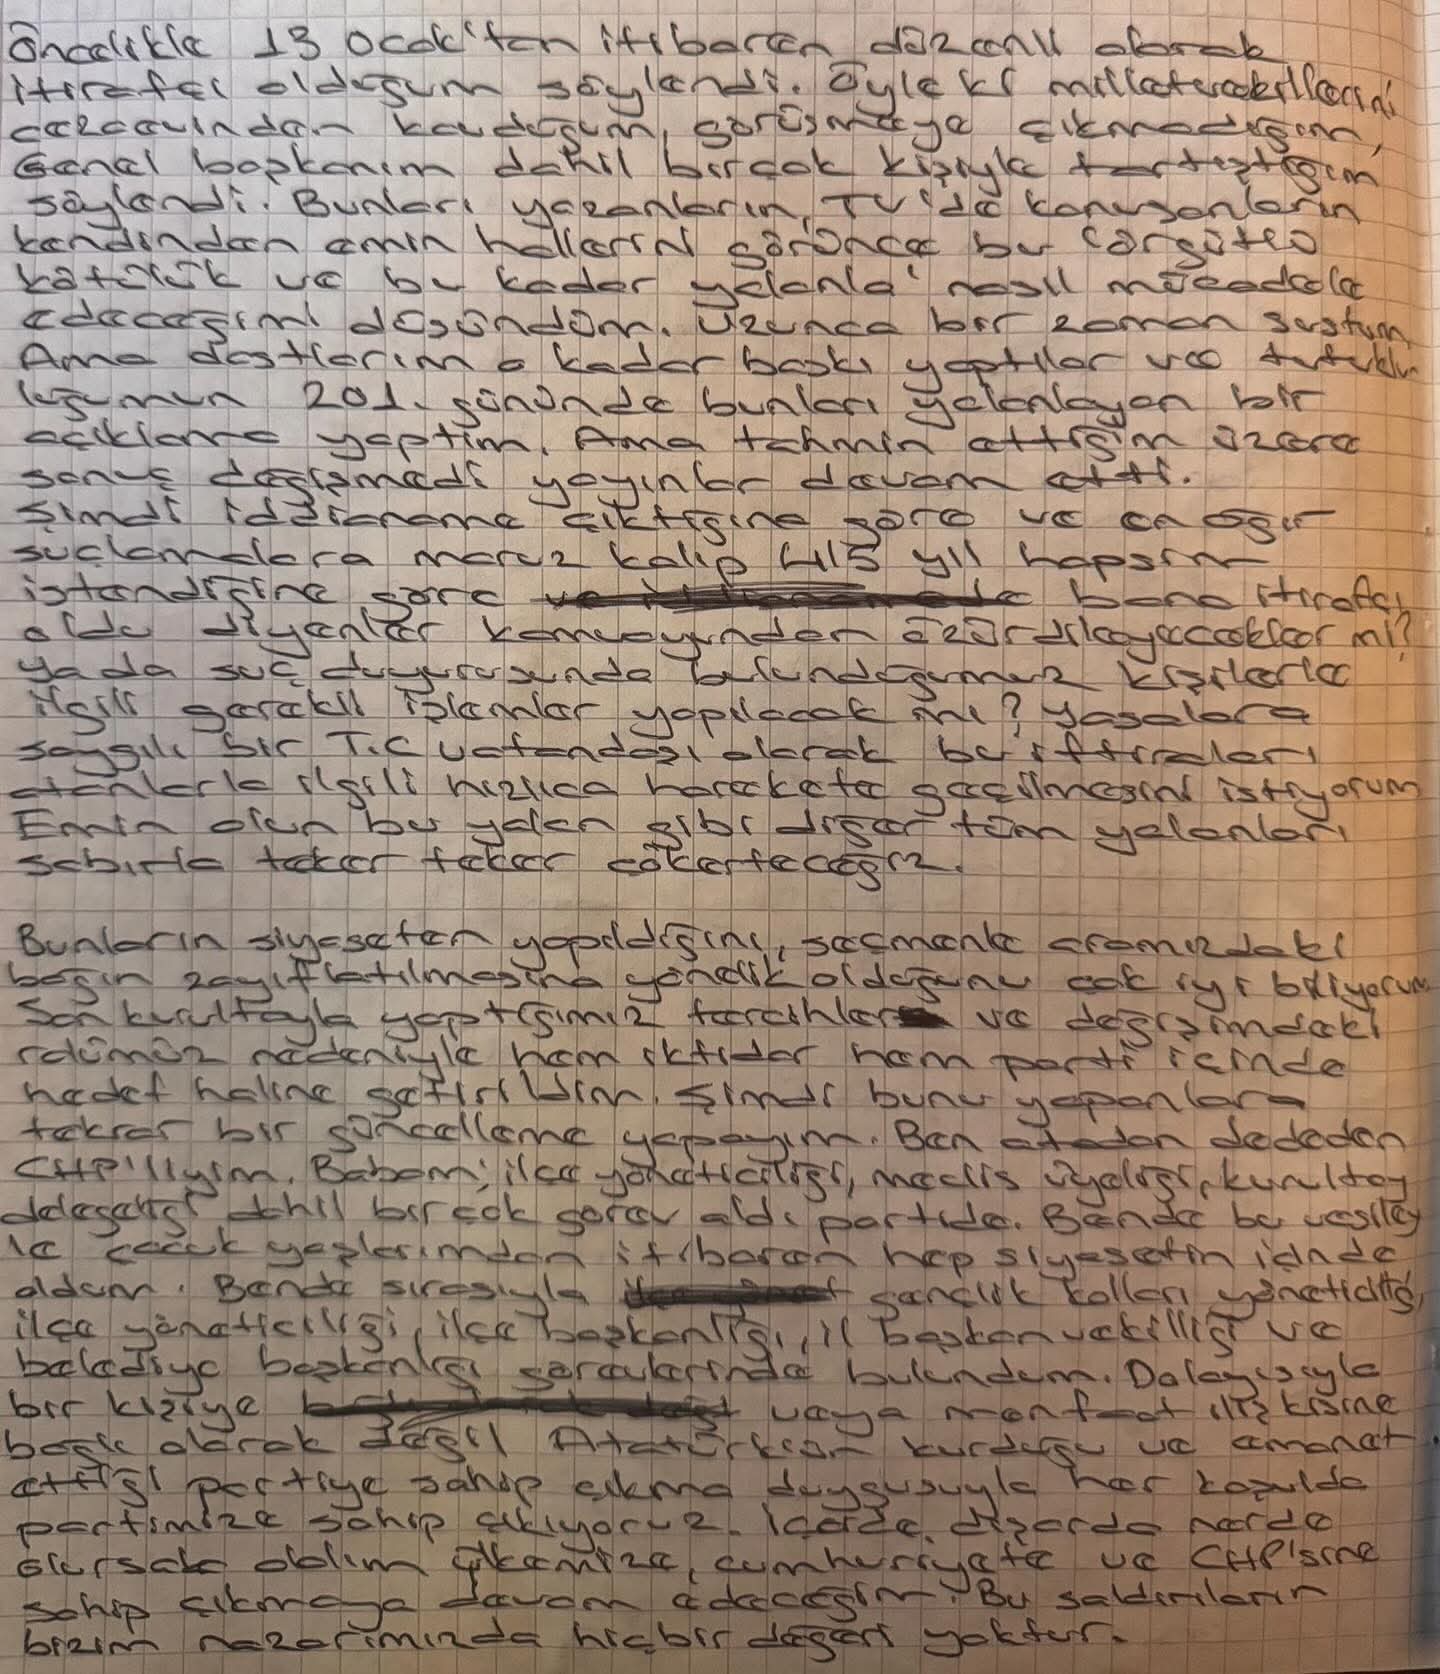 Öncelikle 13 Ocak'tan itibaren düzenli olarak
itirafçı olduğum söylendi. Öyle ki milletvekillerini
cezaevinden kovduğum, görüşmeye çıkmadığım,
Genel başkanım dahil birçok kişiyle tartıştığım
söylendi. Bunları yazanların, TV'de konuşanların
kendinden emin hallerini görünce bu 'örgütlü
kötülük ve bu kadar yalanla' nasıl mücadele
edeceğimi düşündüm. Uzunca bir zaman sustum,
Ama dostlarım o kadar baskı yaptılar ve tutuklu
luğumun 201. gününde bunları yalanlayan bir
açıklama yaptım. Ama tahmin ettiğim üzere
sonuç değişmedi yayınlar devam etti.
Şimdi iddianame çıktığına göre ve en ağır
suçlamalara maruz kalıp 415 yıl hapsim
istendiğine göre bana itirafçı
oldu diyenler kamuoyundan özür dileyecekler mi?
ya da suç duyurusunda bulunduğumuz kişilerle
ilgili gerekli işlemler yapılacak mı? yasalara
saygılı bir T.C vatandaşı olarak bu iftiraları
atanlarla ilgili hızlıca harekete geçilmesini istiyorum
Emin olun bu yalan gibi diğer tüm yalanları
sabırla teker teker çökerteceğiz.
Bunların siyaseten yapıldığını, seçmenle aramızdaki
bağın zayıflatılmasına yönelik olduğunu çok iyi biliyorum
Son kurultayla yaptığımız tercihler ve değişimdeki
rolümüz nedeniyle hem iktidar hem parti içinde
hedef haline getirildim. Şimdi bunu yapanlara
tekrar bir güncelleme yapayım. Ben atadan dededen
CHP'liyim. Babam; ilçe yöneticiliği, meclis üyeliği, kurultay
delegeliği dahil birçok görev aldı partide. Bende bu vesiley
le çocuk yaşlarımdan itibaren hep siyasetin içinde
oldum. Bende sırasıyla gençlik kolları yöneticiliği,
ilçe yöneticiliği, ilçe başkanlığı, il başkan vekilliği ve
belediye başkanlığı görevlerinde bulundum. Dolayısıyla
bir kişiye veya menfaat ilişkisine
bağlı olarak değil Atatürk'ün kurduğu ve emanet
ettiği partiye sahip çıkma duygusuyla her koşulda
partimize sahip çıkıyoruz. İçerde, dışarda nerde
olursak olalım ülkemize, cumhuriyete ve CHP'sine
sahip çıkmaya devam edeceğim. Bu saldırıların
bizim nazarımızda hiçbir değeri yoktur.